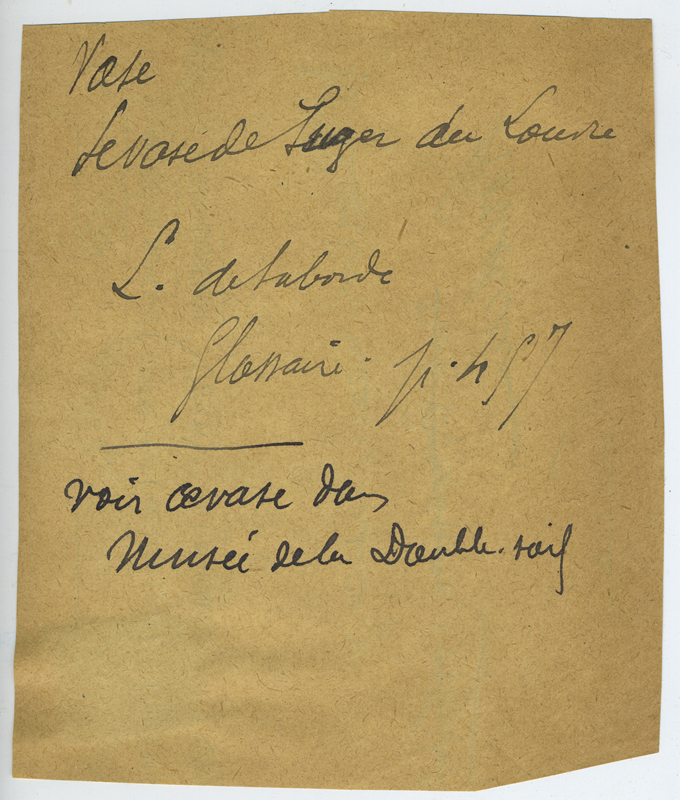 Vase
Le vase de Suger du Louvre
L. de Laborde
Glossaire. p. 457
voir ce vase dans
Musée de la Double. soif